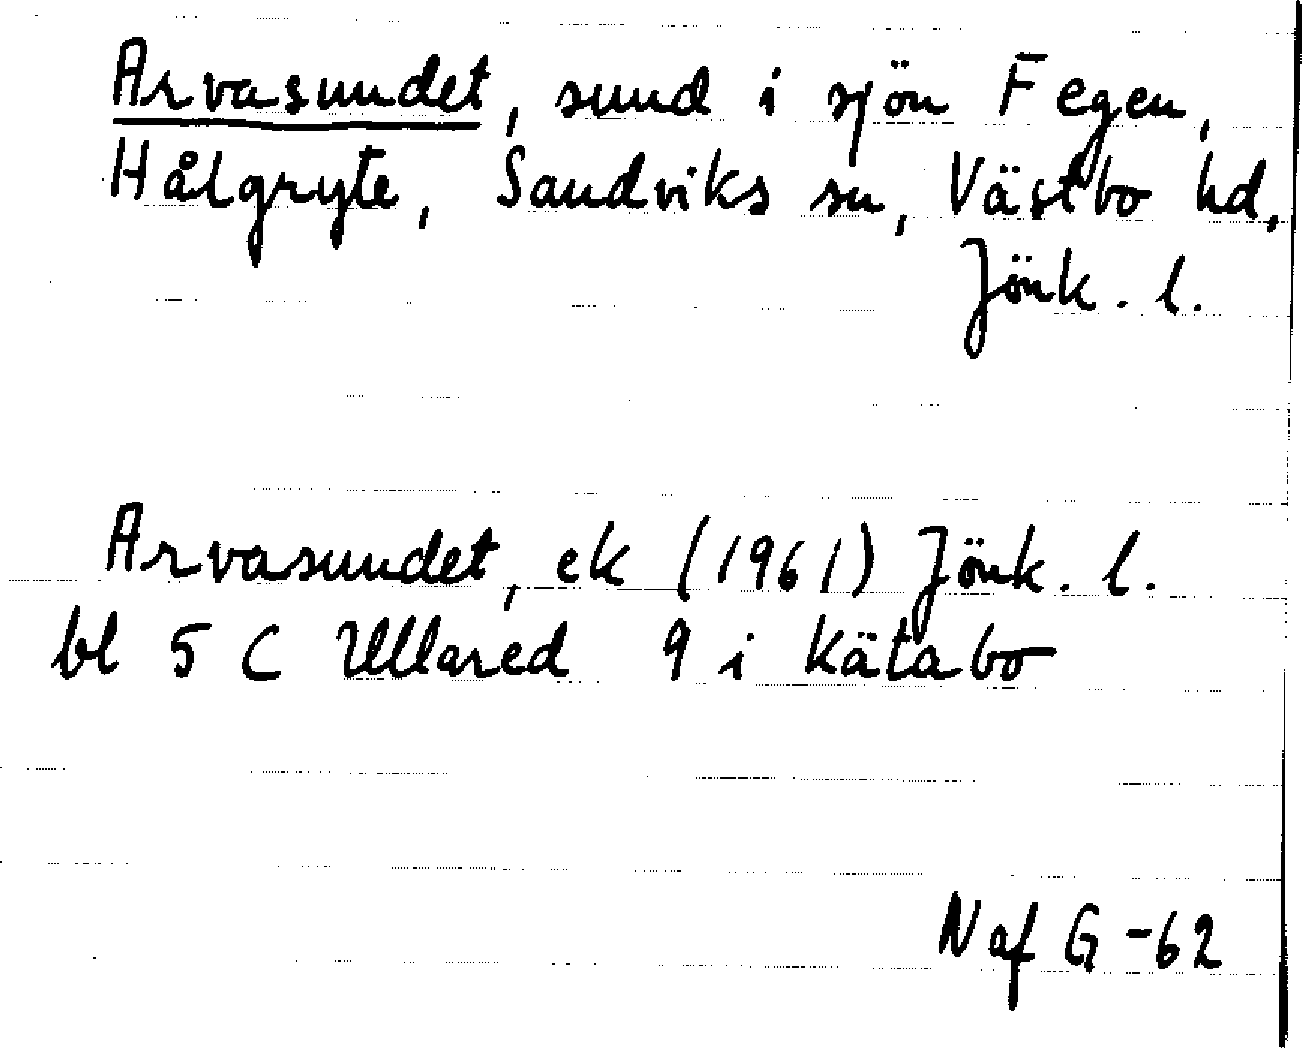 Arvasundet, sund i sjön Fegen,
Hålgryte, Sandviks sn, Västbo hd,
Jönk. l.
Arvasundet, ek (1961) Jönk. l.
bl 5 C Ullared 9 i Kätabo
N af G -62